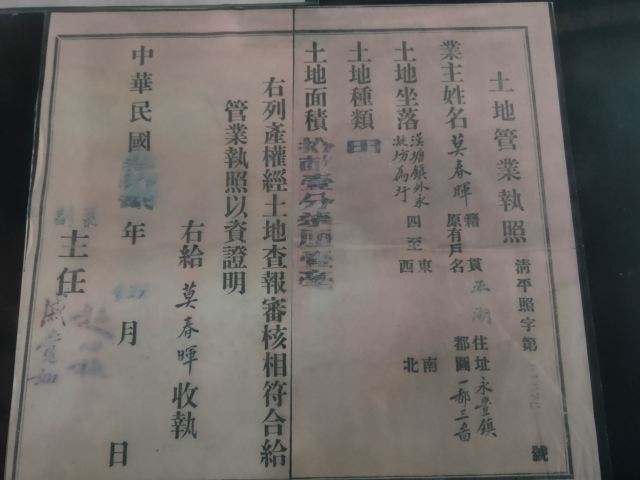 土地管業執照 清平照字第 號
業主姓名 莫春暉 籍貫 平湖 住址 永豐鎮
原有戶名 都圖 一都三啚
土地坐落 漢塘鎮外永凝坊為圩 四至 東 南 西 北
土地種類 田
土地面積 拾畝壹分
右列產權經土地查報審核相符合給
管業執照以資證明
右給 莫春暉 收執
中華民國 年 月 日
主任